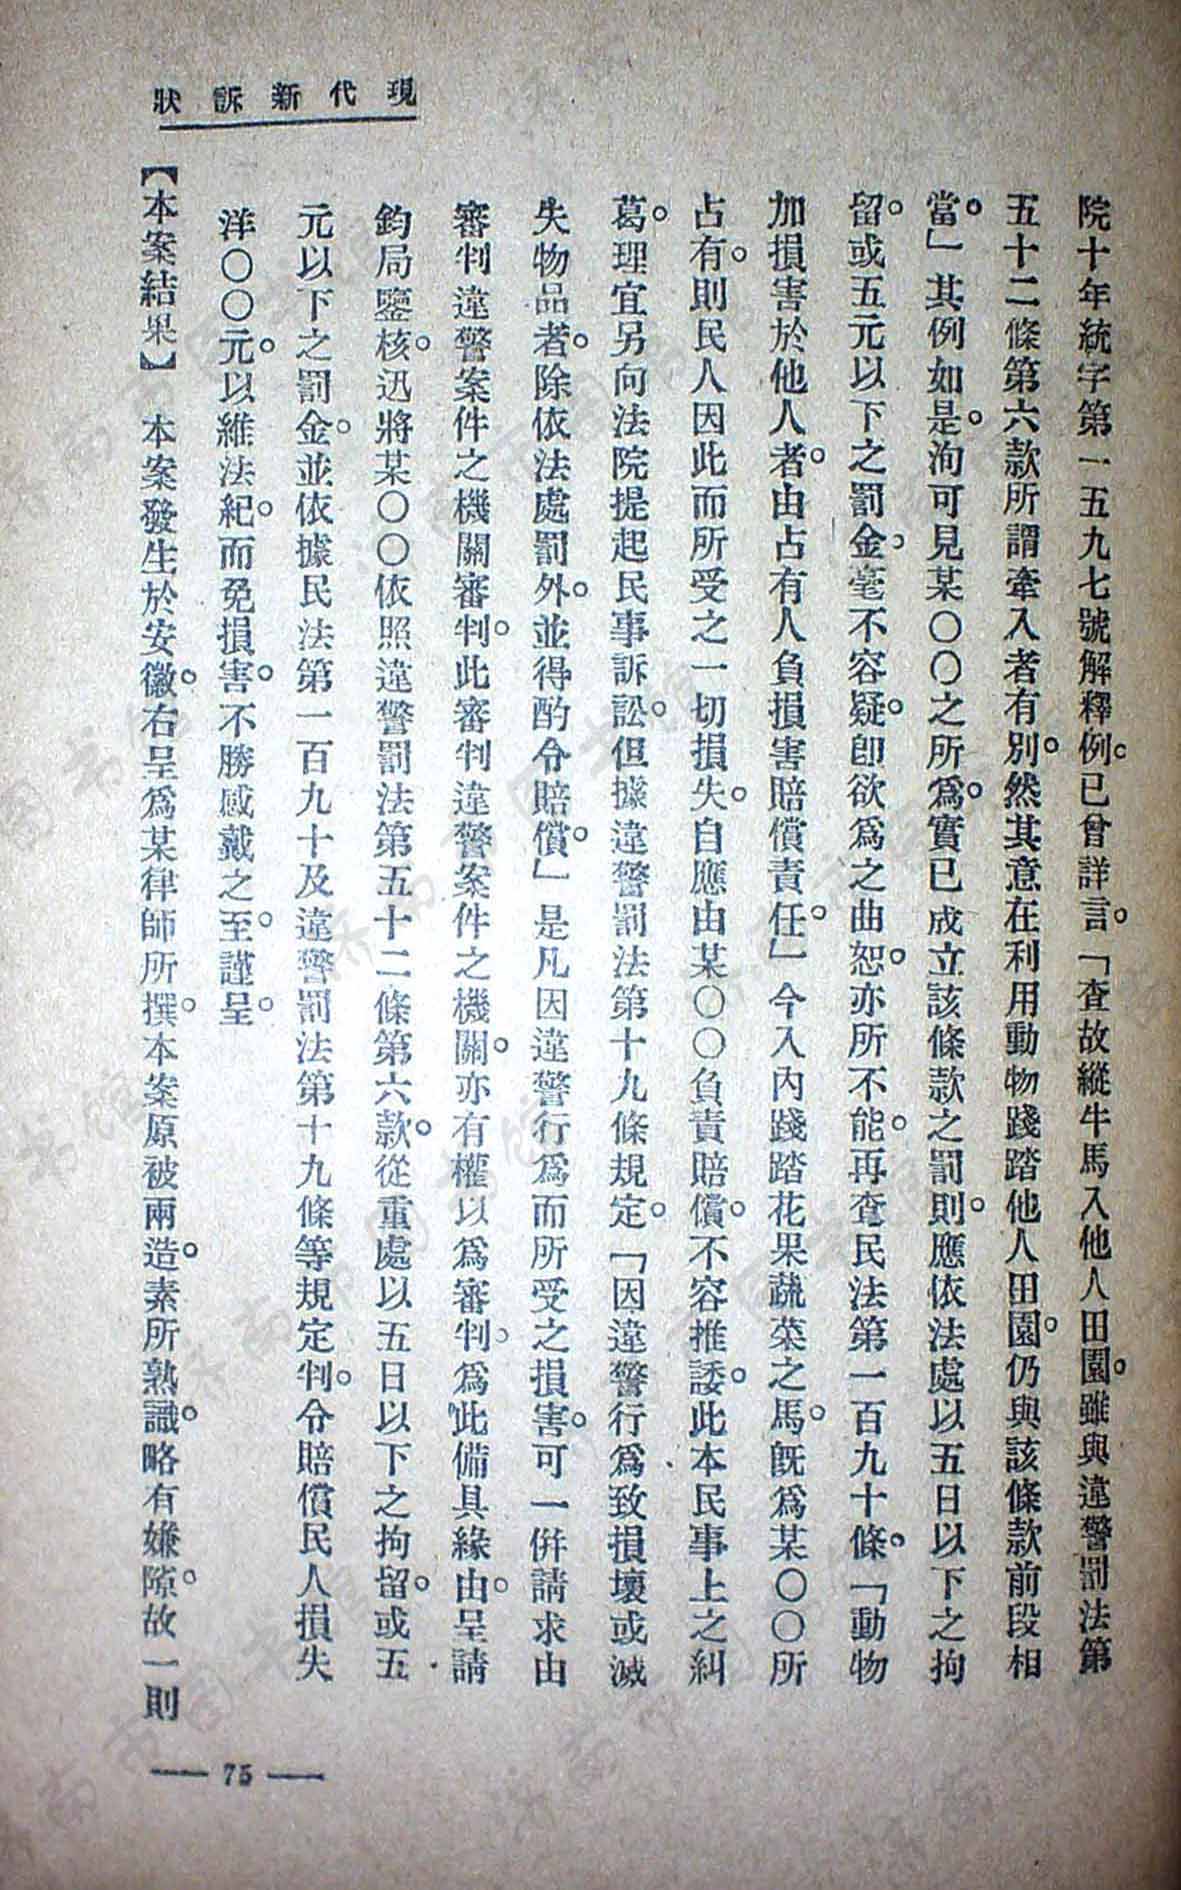 現代新訴狀
院十年統字第一五九七號解釋例。已曾詳言。「查故縱牛馬入他人田園。雖與違警罰法第
五十二條第六款所謂牽入者有別。然其意在利用動物踐踏他人田園。仍與該條款前段相
當。」其例如是。洵可見某〇〇之所爲。實已成立該條款之罰則。應依法處以五日以下之拘
留。或五元以下之罰金。毫不容疑。卽欲爲之曲恕。亦所不能。再查民法第一百九十條。「動物
加損害於他人者。由占有人負損害賠償責任。」今入內踐踏花果蔬菜之馬。旣爲某〇〇所
占有。則民人因此而所受之一切損失。自應由某〇〇負責賠償。不容推諉。此本民事上之糾
葛。理宜另向法院提起民事訴訟。但據違警罰法第十九條規定。「因違警行爲致損壞或滅
失物品者。除依法處罰外。並得酌令賠償。」是凡因違警行爲而所受之損害。可一併請求由
審判違警案件之機關審判。此審判違警案件之機關。亦有權以爲審判。爲此備具緣由。呈請
鈞局鑒核。迅將某〇〇依照違警罰法第五十二條第六款。從重處以五日以下之拘留。或五
元以下之罰金。並依據民法第一百九十及違警罰法第十九條等規定。判令賠償民人損失
洋〇〇元。以維法紀。而免損害。不勝感戴之至。謹呈。
【本案結果】 本案發生於安徽。右呈爲某律師所撰。本案原被兩造。素所熟識。略有嫌隙。故一則
— 75 —
濟南市图书馆